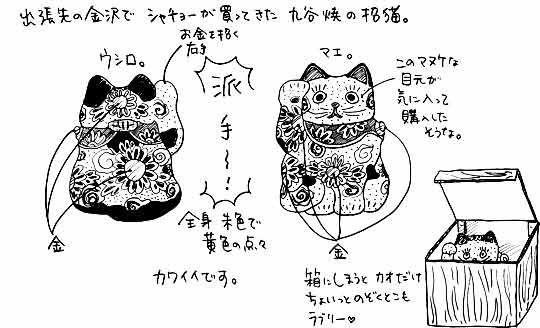 出張先の金沢で シャチョーが買ってきた 九谷焼の招猫。
お金を招く
右手
ウシロ。
派
手
〜
!
マエ。
このマヌケな
目元が
気に入って
購入した
そうな。
金
全身 朱色で
黄色の点々
金
カワイイです。
箱にしまうと カオだけ
ちょいっとのぞくとこも
ラブリー♡